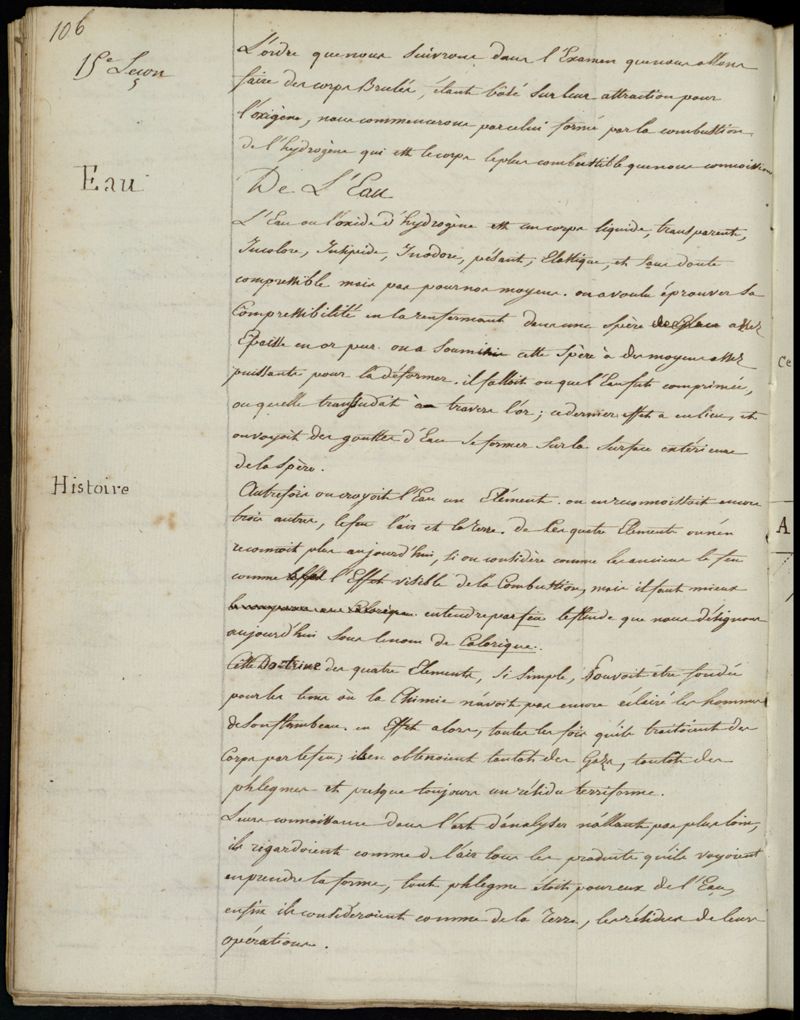 106
15e Leçon
L'ordre que nous suivrons dans l'Examen que nous allons
faire des corps Brulés, étant bâsé sur leur attraction pour
l'oxigène, nous commencerons par celui formé par la combustion
de l'hydrogène qui est le corps le plus combustible que nous connoissions
Eau
De L'Eau
L'Eau ou l'oxide d'hydrogène est un corps liquide, transparent,
Incolore, Insipide, Inodore, pésant, Elastique, et sans doute
compressible mais pas par nos moyens. on a voulu éprouver sa
Compressibilité en la renfermant dans une spère assez
Epaisse en or pur. on a soumis cette spère à des moyens assez
puissants pour la déformer. il falloit ou que l'Eau fut comprimée,
ou quelle transsudat à travers l'or; ce dernier effet a eu lieu, et
on voyoit des gouttes d'Eau se former sur la surface extérieure
de la spère.
Histoire
Autrefois on croyoit l'Eau un Elément. on en reconnoissoit encore
trois autres, le feu l'air et la terre. de ces quatre Elements on n'en
reconnoit plus aujourd'hui, si on considère comme les anciens le feu
comme l'Effet visible de la Combustion, mais il faut mieux
entendre par feu le fluide que nous désignons
aujourd'hui sous le nom de Calorique.
Cette Doctrine des quatre Elements, si simple, Pouvoit être fondée
pour les tems où la Chimie n'avoit pas encore éclairé les hommes
de son flambeau. en Effet alors, toutes les fois qu'ils traitoient des
Corps par le feu, ils en obtenoient tantot des Gazs, tantot des
phlegmes et presque toujours un résidu terriforme.
Leurs connoissances dans l'art d'analyser n'allant pas plus loin,
ils regardoient comme de l'air tous les produits qu'ils voyoient
en prendre la forme, tout phlegme étoit pour eux de l'Eau,
enfin ils considéroient comme de la Terre, les résidus de leurs
opérations.
Ce
A